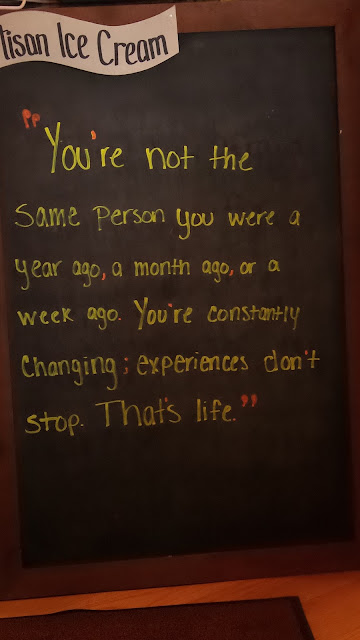 tisan Ice Cream
"You're not the
same person you were a
year ago, a month ago, or a
week ago. You're constantly
changing; experiences don't
stop. That's life."